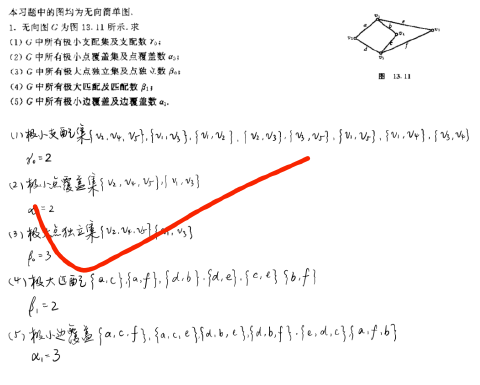 本习题中的图均为无向简单图.
1. 无向图G为图 13.11 所示, 求
(1) G 中所有极小支配集及支配数 γ₀;
(2) G 中所有极小点覆盖集及点覆盖数 α₀;
(3) G 中所有极大点独立集及点独立数 β₀;
(4) G 中所有极大匹配及匹配数 β₁;
(5) G 中所有极小边覆盖及边覆盖数 α₁.
图 13.11
(1) 极小支配集{v₂,v₄,v₅},{v₁,v₃},{v₁,v₂},{v₂,v₃},{v₃,v₅},{v₁,v₅},{v₁,v₄},{v₃,v₄}
γ₀=2
(2) 极小点覆盖集{v₂,v₄,v₅},{v₁,v₃}
α₀=2
(3) 极大点独立集{v₂,v₄,v₅} v₃}
β₀=3
(4) 极大匹配{a,c},{a,f},{d,b},{d,e},{c,e}{b,f}
β₁=2
(5) 极小边覆盖{a,c,f},{a,c,e}{d,b,e},{d,b,f},{e,d,c}{a,f,b}
α₁=3